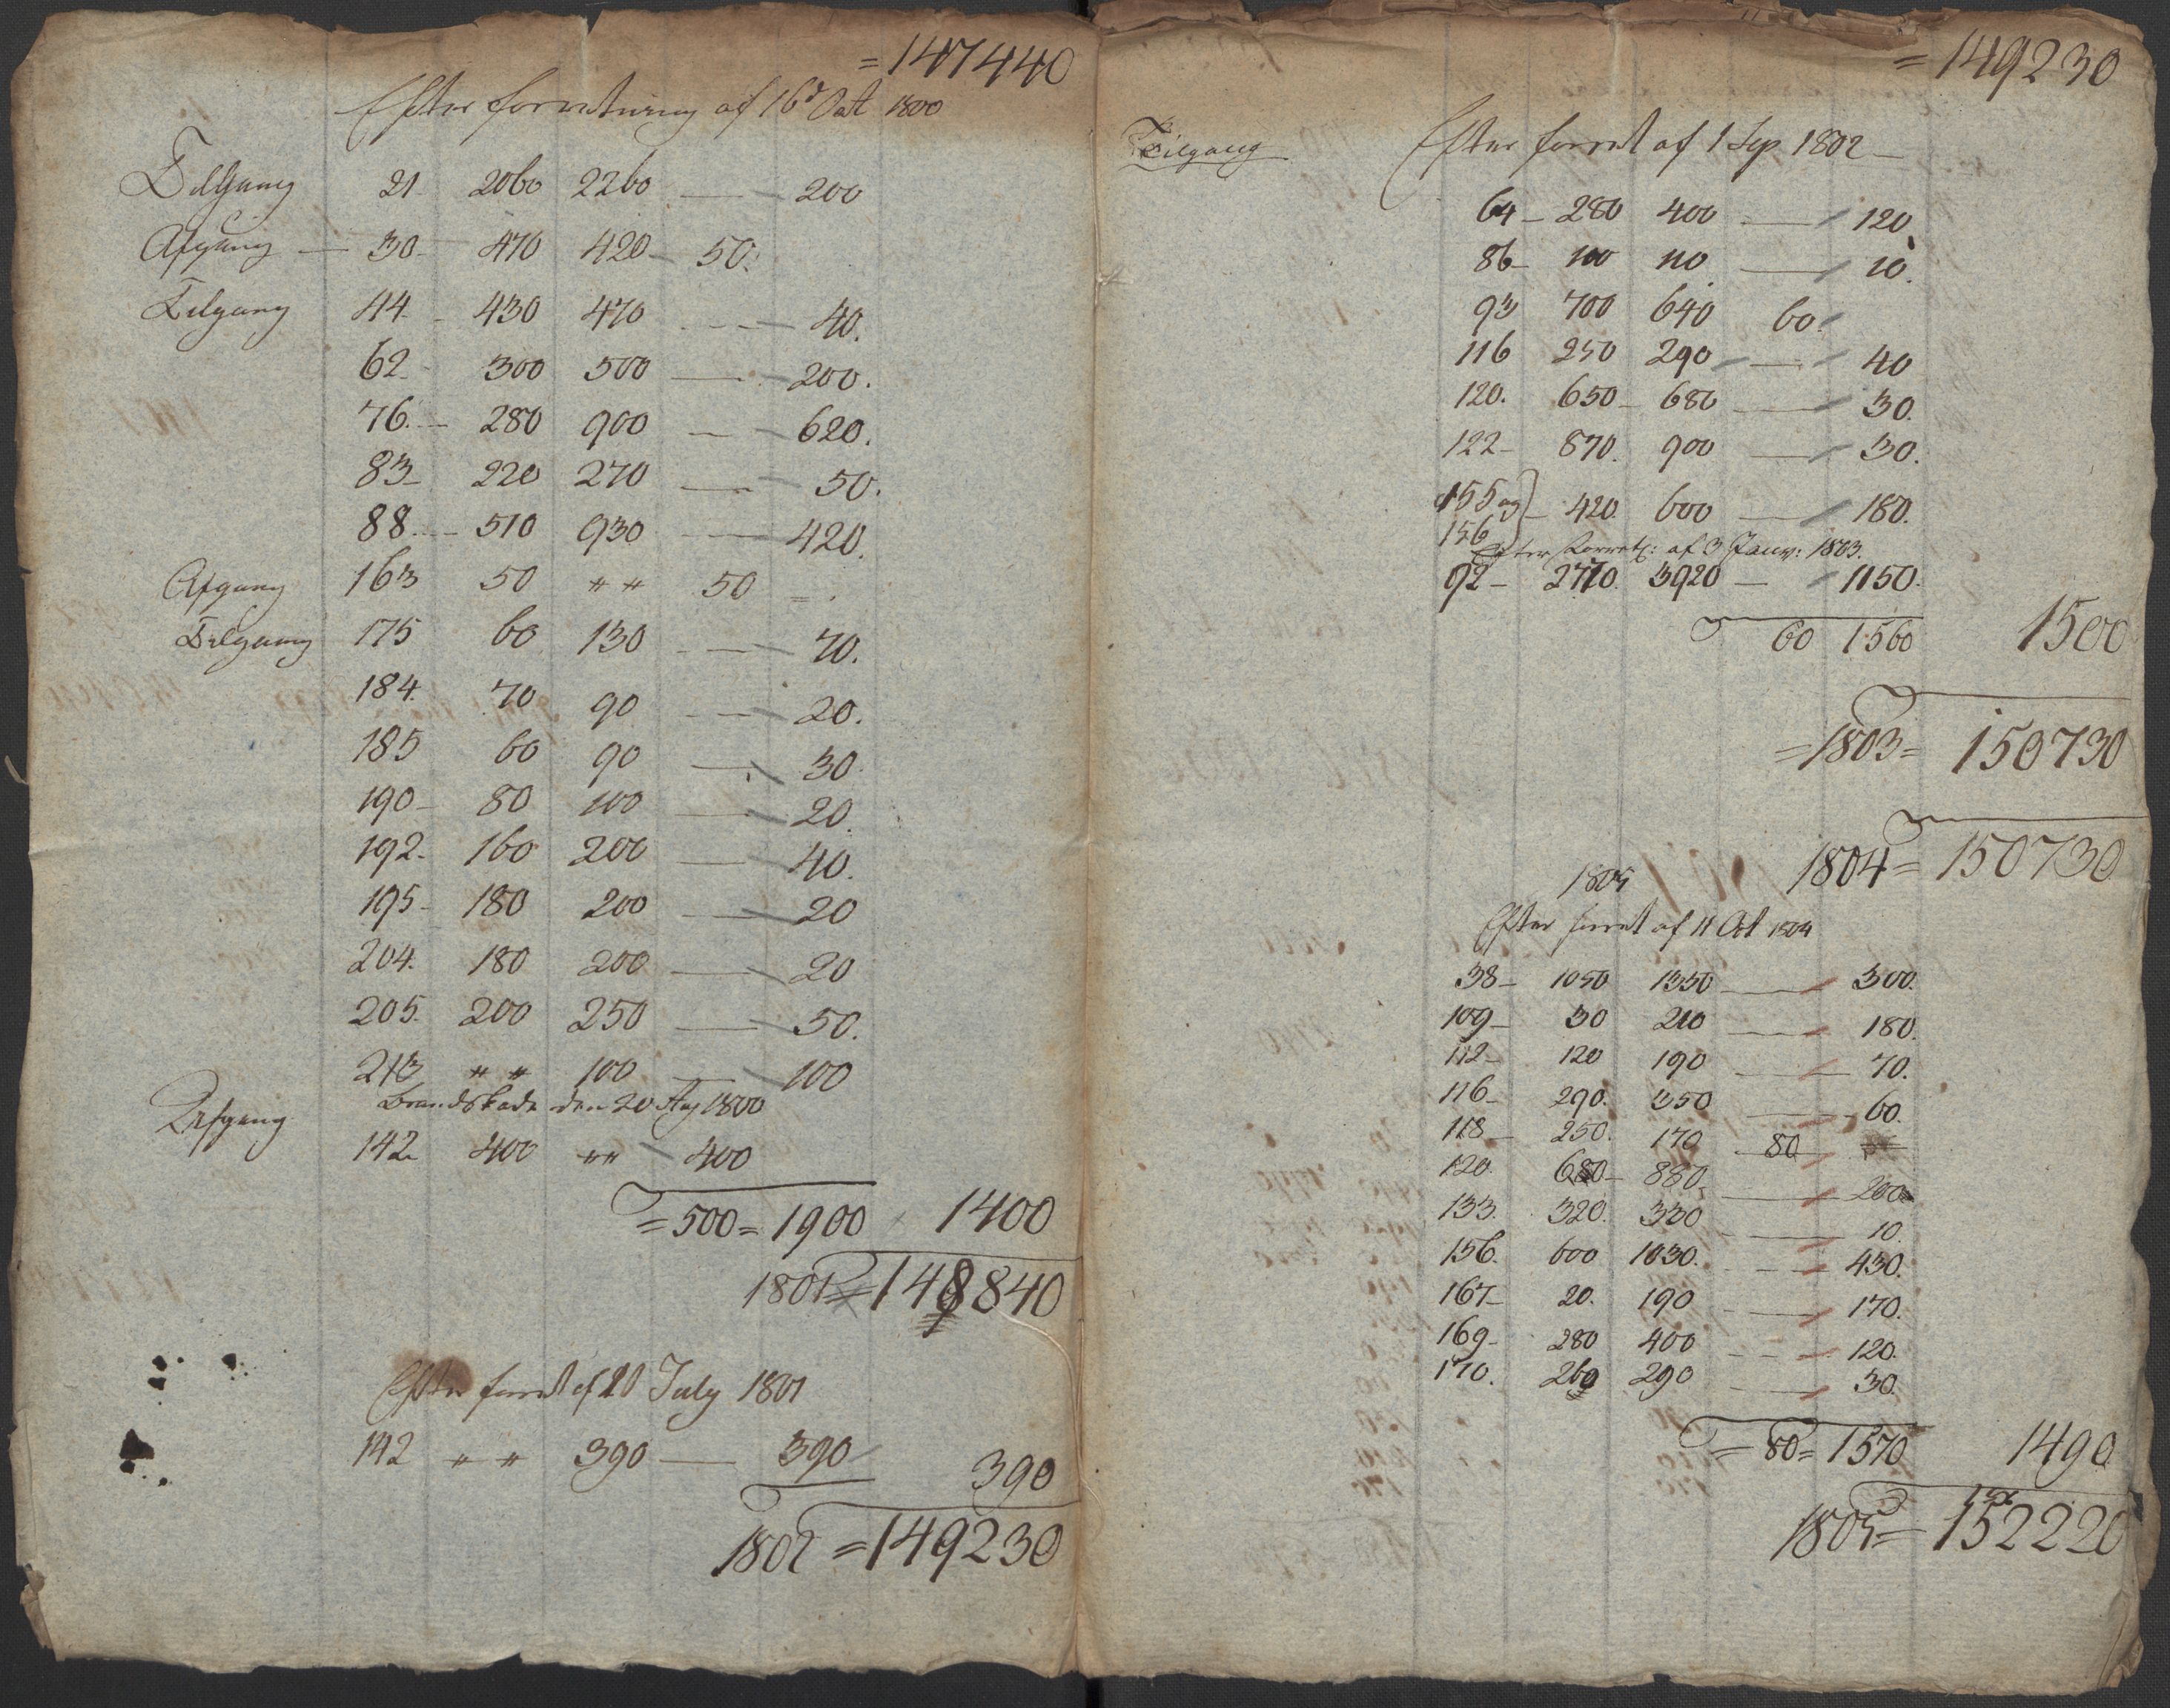 =147440
Efter forretning af 16d Oct 1800
Tilgang 21 2060 2260 — 200
Afgang — 30 - 470 420 - 50.
Tilgang 44 - 430 470 — 40.
62 - 300 500 — 200.
76. - 280 900 — 620.
83 - 220 270 — 50.
88. - 510 930 — 420.
Afgang 163 50 " " 50 =.
Tilgang 175 60 130 — 70.
184. 70 90 — 20.
185 60 90 — 30.
190 - 80 100 — 20.
192. 160 200 — 40.
195 - 180 200 — 20
204. 180 200 — 20
205. 200 250 — 50.
213 " " 100 — 100
Brandskade den 20 Aug 1800
Afgang 142. 400 " " 400
= 500 = 1900 1400
1801 = 148840
Efter forret af 21 July 1801
142 " " 390 — 390 390
1802 = 149230
= 149230
Tilgang Efter forret af 1 Sep 1802
64 - 280 400 — 120.
86 - 100 110 — 10.
93 700 640 60.
116 250 290 — 40
120. 650 - 680 — 30.
122 - 870. 900 — 30.
155 og } - 420. 600 — 180.
156
Efter Forret: af 3 Janv: 1803.
92 - 2770. 3920 — 1150.
60 1560 1500
= 1803 = 150730
1804 = 150730
1805
Efter forret af 11 Oct 1804
38 - 1050 1350 — 300.
109 - 30 210 — 180.
112 - 120 190 — 70.
116 - 290. 350 — 60.
118 - 250. 170 80
120. 680 - 880. — 200
133. 320. 330 — 10.
156. 600 1030. — 430.
167 - 20. 190 — 170.
169 - 280 400 — 120.
170. 260 290 — 30.
= 80 = 1570 1490
1805 = 152220